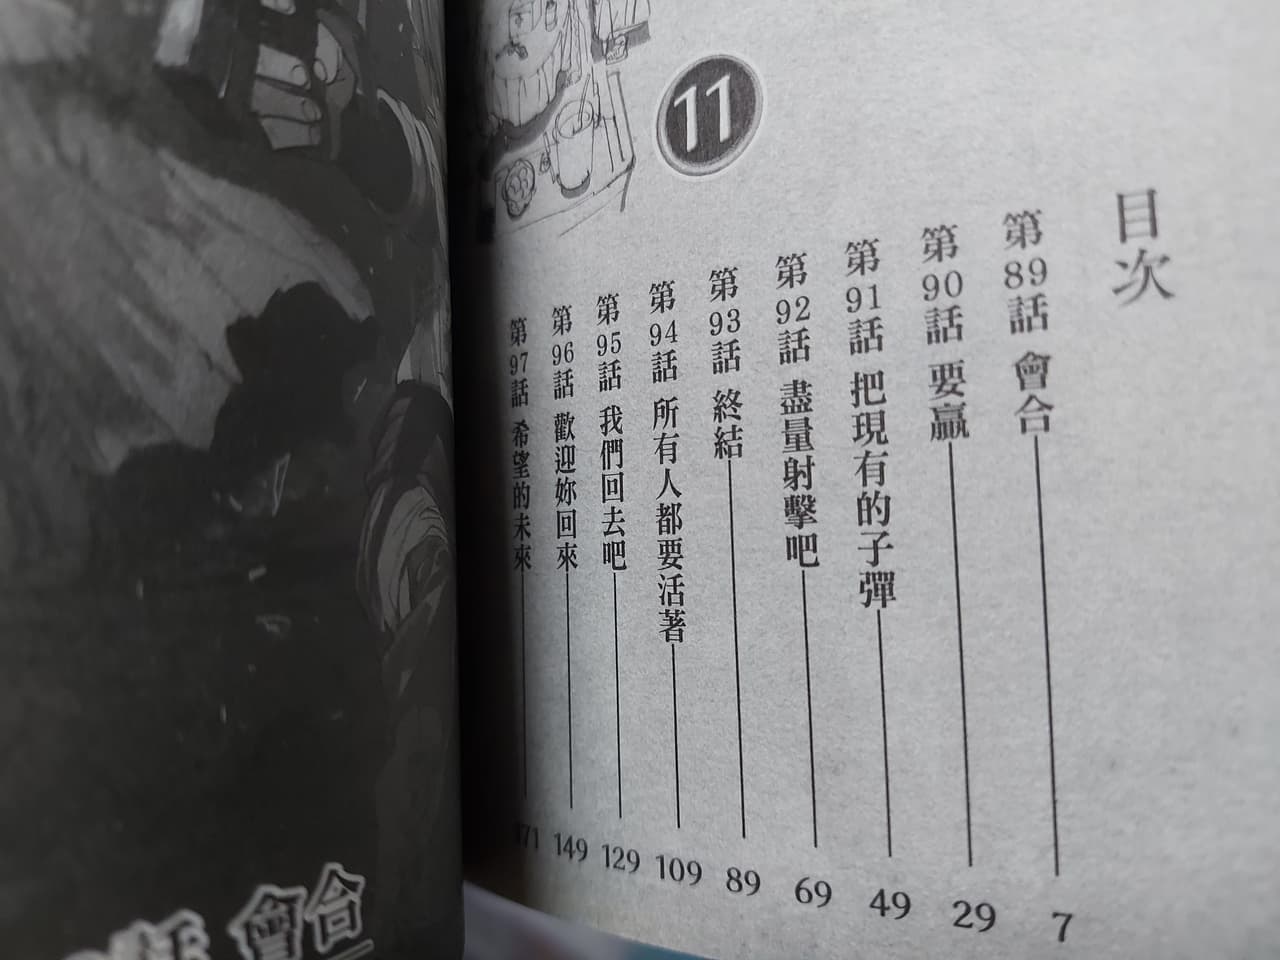 11
目次
第89話 會合 7
第90話 要贏 29
第91話 把現有的子彈 49
第92話 盡量射擊吧 69
第93話 終結 89
第94話 所有人都要活著 109
第95話 我們回去吧 129
第96話 歡迎妳回來 149
第97話 希望的未來 171
話 會合